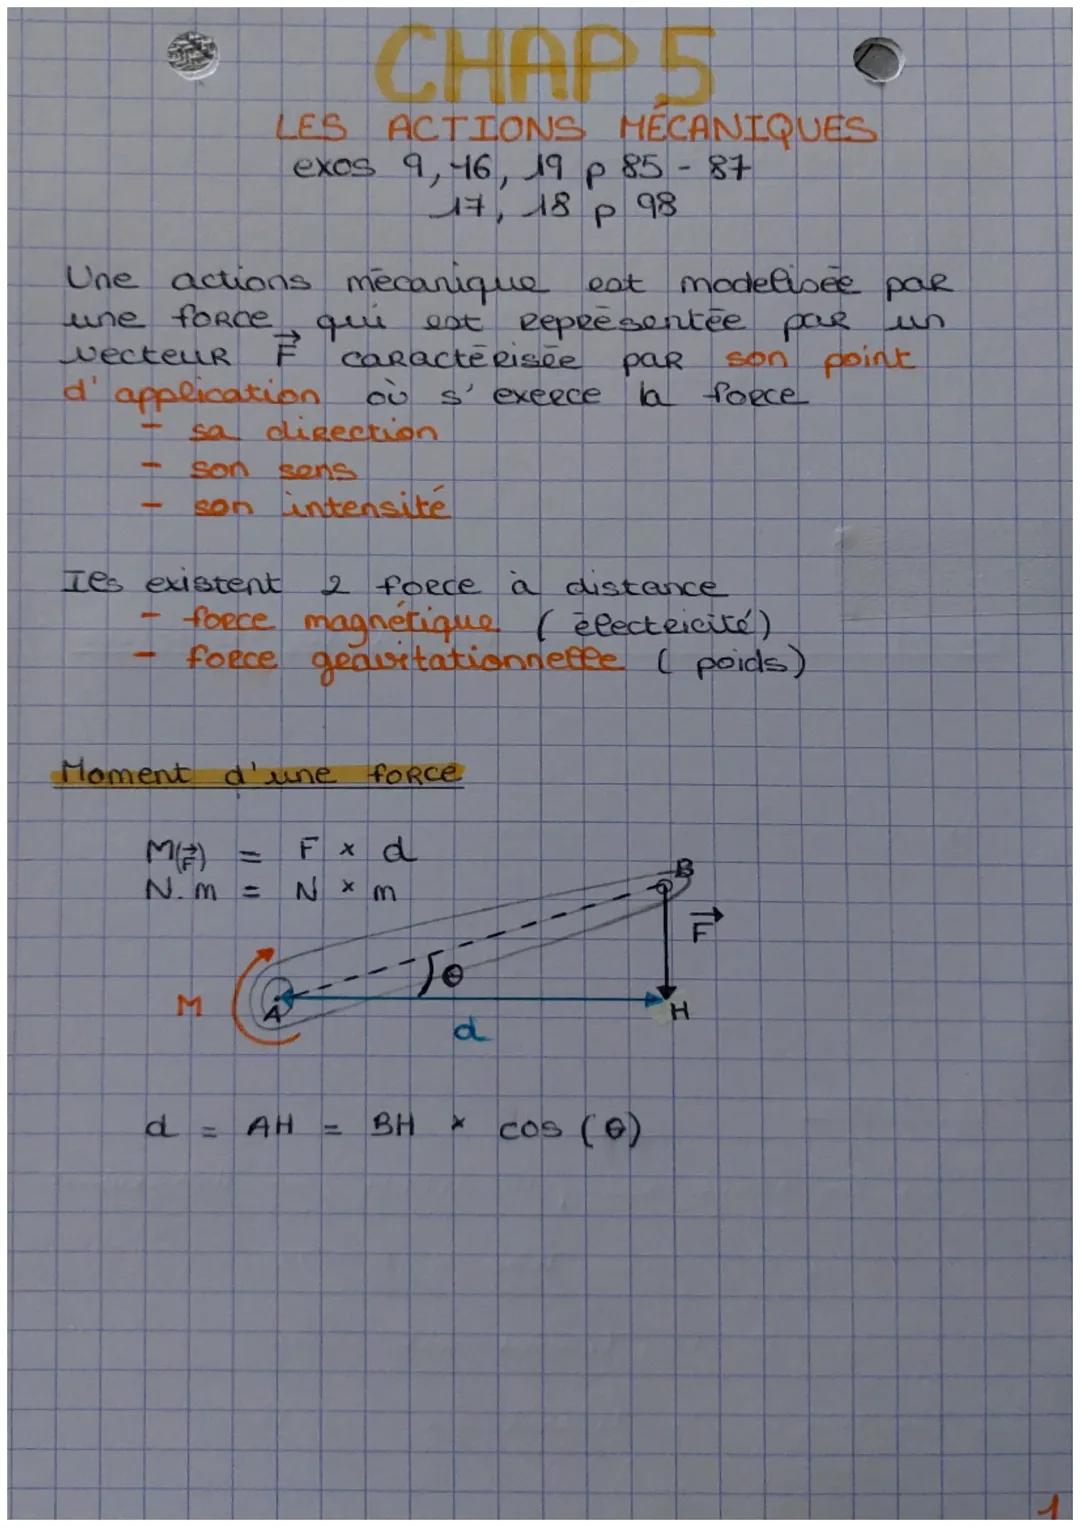 CHAP 5
LES ACTIONS MÉCANIQUES
exos 9, 16, 19 p 85 - 87
17, 18 p 98
Une actions mécanique est modelisée par
une force qui est représentée par un
vecteur F⃗ caractérisée par son point
d'application où s'exerce la force
- sa direction
- son sens
- son intensité
Ils existent 2 force à distance
- force magnétique (électricité)
- force gravitationnelle (poids)
Moment d'une force
M(F⃗) = F x d
N.m = N x m
B
F⃗
θ
M
A
H
d
d = AH = BH x cos (θ)
1